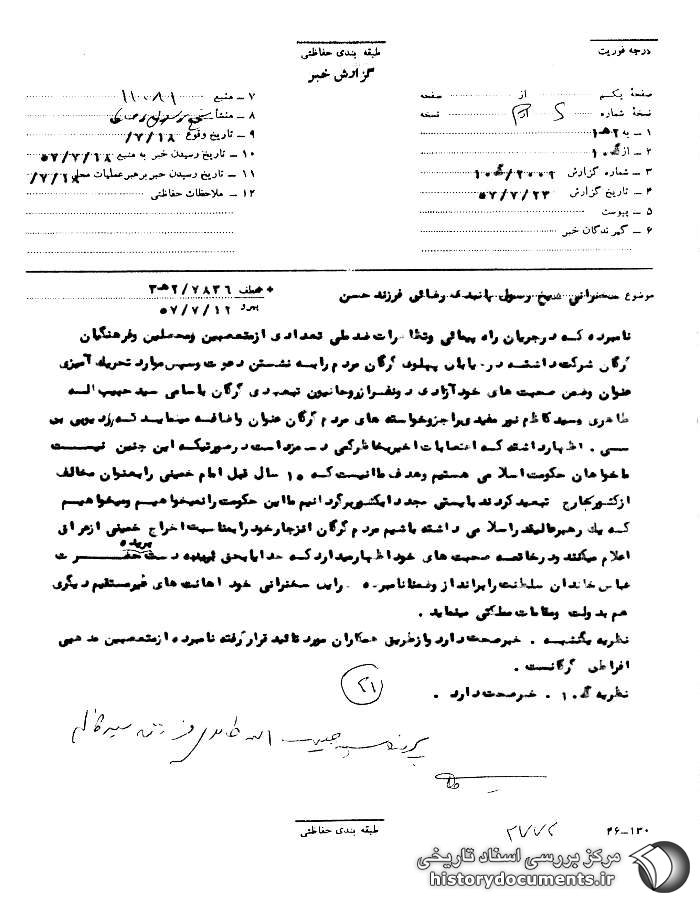 درجه فوریت
طبقه بندی حفاظتی
گزارش خبر
صفحهٔ یکم از صفحه
نسخهٔ شماره نسخه
۱ ـ به ۳۱۲ه‍
۲ ـ از ۱۰ گ
۳ ـ شماره گزارش ۲۰۰۲/۱۰گ
۴ ـ تاریخ گزارش ۵۷/۷/۲۳
۵ ـ پیوست
۶ ـ گیرندگان خبر
۷ ـ منبع ۱۱۰۸۹
۸ ـ منشأ شیخ رسول رضائی
۹ ـ تاریخ وقوع ۷/۱۸/
۱۰ ـ تاریخ رسیدن خبر به منبع ۵۷/۷/۱۸
۱۱ ـ تاریخ رسیدن خبر برهبر عملیات محل ۷/۱۸/
۱۲ ـ ملاحظات حفاظتی
موضوع سخنرانی شیخ رسول بانیدی رضائی فرزند حسن
عطف ۳۱۲/۷۸۳۶ه‍
پیرو ۵۷/۷/۱۲
نامبرده که در جریان راه پیمائی وتظاهرات ضد ملی تعدادی ازمتعصبین ومحصلین وفرهنگیان
گرگان شرکت داشته در خیابان پهلوی گرگان مردم رابه نشستن دعوت وسپس موارد تحریک آمیزی
عنوان وضمن صحبت های خود آزادی دونفر از روحانیون تبعیدی گرگان باسامی سید حبیب اله
طاهری وسید کاظم نور مفیدی را جزو خواسته های مردم گرگان عنوان واضافه مینماید که رادیو بی بی
سی . اظهار داشته که اعتصابات اخیر بخاطر کمی دستمزد است درصورتیکه این چنین نیست
ما خواهان حکومت اسلامی هستیم وهدف ما اینست که ۱۵ سال قبل امام خمینی را بعنوان مخالف
از کشور بخارج تبعید کردند بایستی مجددا بکشور برگردانیم ما این حکومت را نمیخواهیم ومیخواهیم
که یک رهبر عالیقدر اسلامی داشته باشیم مردم گرگان انزجار خود را بمناسبت اخراج خمینی از عراق
اعلام میکنند ودر خاتمه صحبت های خود اظهار میدارد که خدایا بحق دست بریده حضرت
عباس خاندان سلطنت را برانداز وضمنا نامبرده در این سخنرانی خود اهانت های غیر مستقیم دیگری
هم به دولت ومقامات مملکتی مینماید .
نظریه یکشنبه . خبر صحت دارد واز طریق همکاران مورد تائید قرار گرفته نامبرده از متعصبین مذهبی
افراطی گرگانست .
نظریه ۱۰ گ . خبر صحت دارد .
۲۱
پرونده سید حبیب اله طاهری و سید کاظم
طبقه بندی حفاظتی
۴۶-۱۳۰
مرکز بررسی اسناد تاریخی
historydocuments.ir